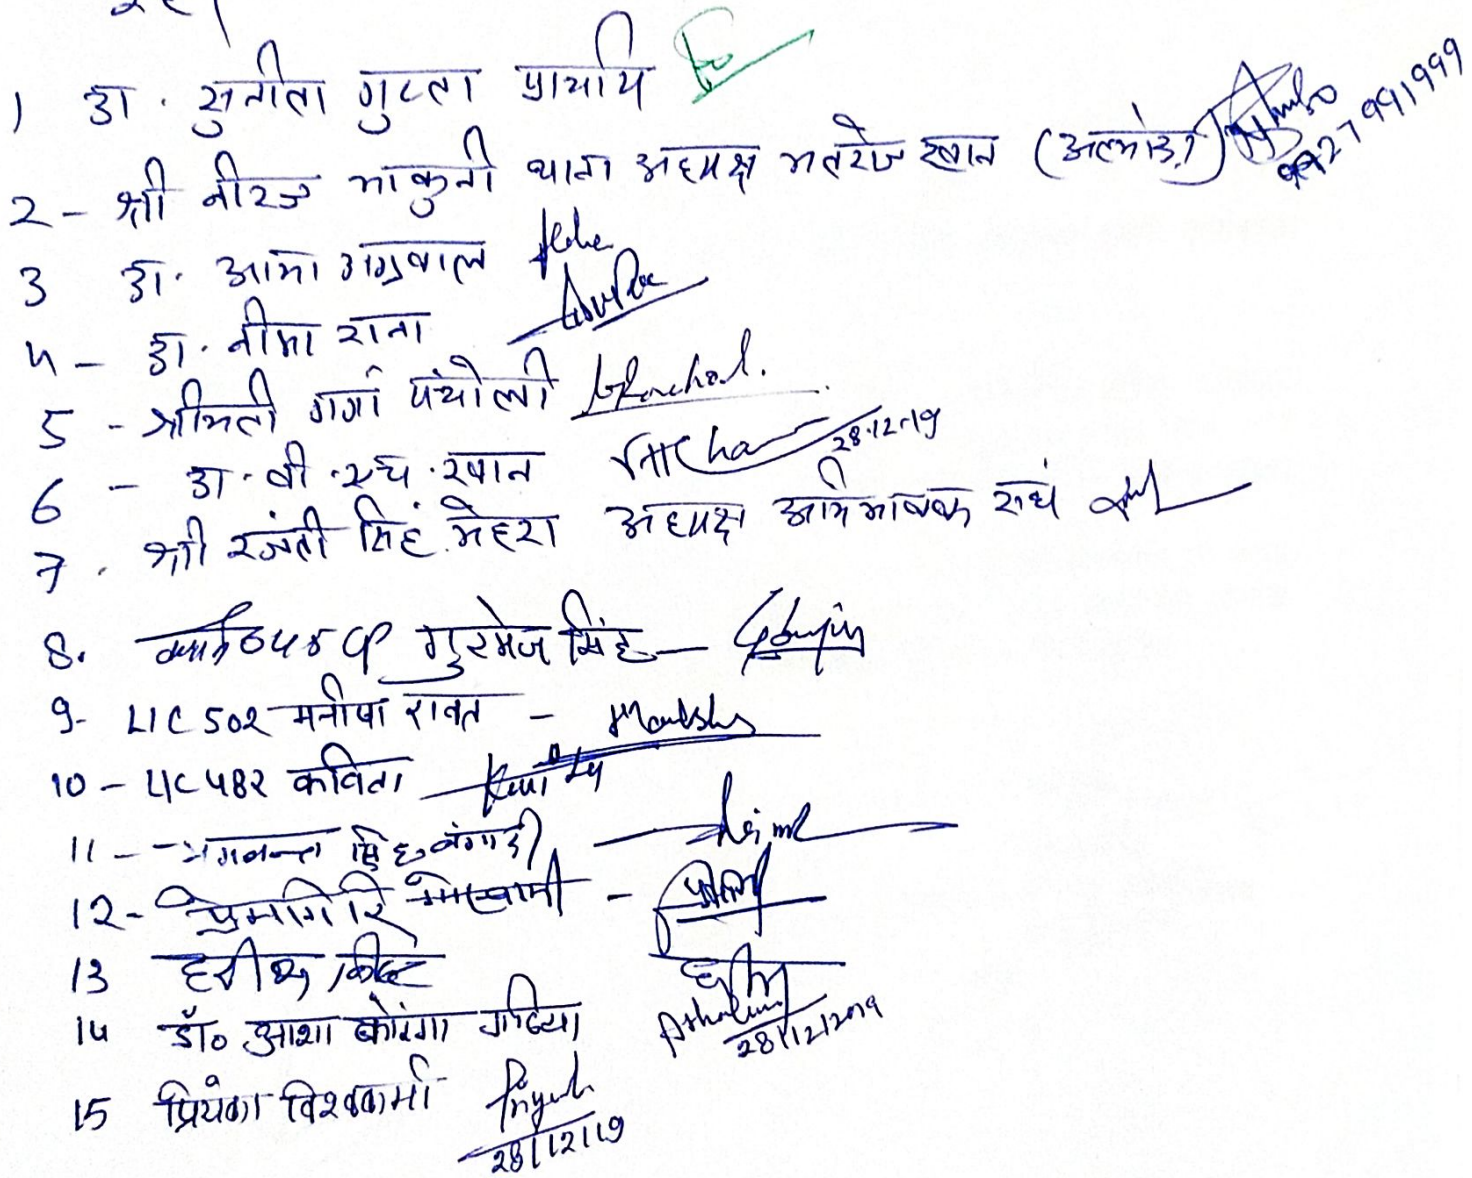 1 डा. सुनीता गुप्ता प्राचार्य
2 - श्री नीरज भाकुनी थाना अध्यक्ष भतरोज खान (अल्मोड़ा) 9927991999
3 डा. आभा अग्रवाल
4 - डा. नीमा राना
5 - श्रीमती गार्गी पंचोली
6 - डा. बी. एच. खान 28.12.19
7. श्री रंजीत सिंह मेहरा अध्यक्ष अभिभावक संघ
8. गुरमेज सिंह -
9- LIC 502 मनीषा रावत -
10 - LIC 482 कविता
11 - भगवन्त सिंह बंगारी
12 - प्रेमगिरि गोस्वामी -
13 हरीश
14 डॉ० आशा कोरंगा 28/12/2019
15 प्रियंका विश्वकर्मा 28/12/19